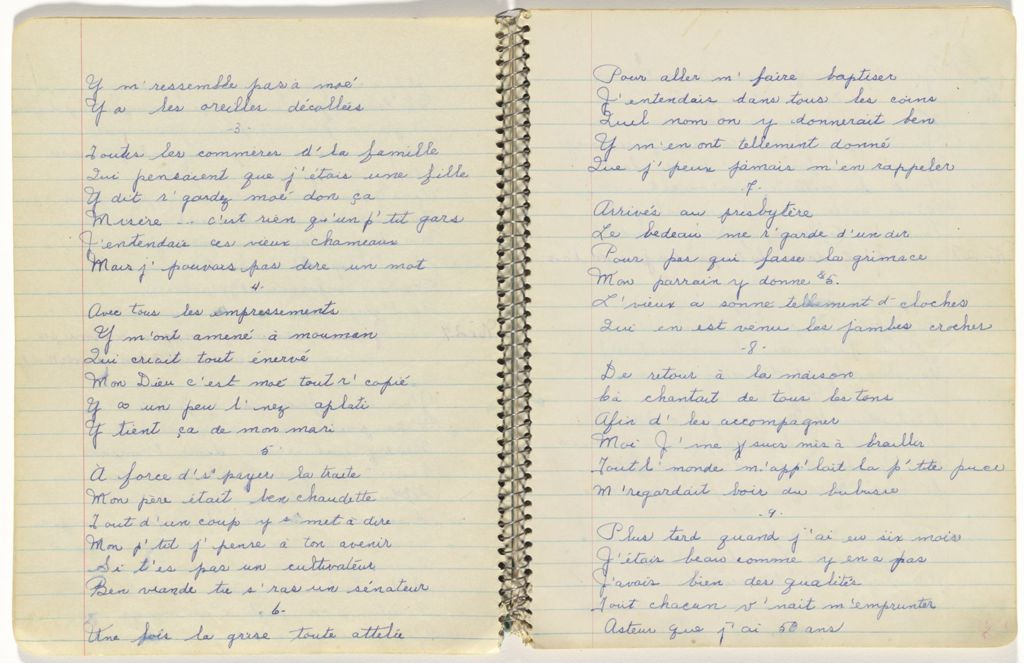 Y m'ressemble pas à moé
Y a les oreilles décollées
-3-
Toutes les commères d'la famille
Qui pensaient que j'étais une fille
Y dit r'gardez moé don ça
Misère -- c'est rien qu'un p'tit gars
J'entendais ces vieux chameaux
Mais j'pouvais pas dire un mot
4-
Avec tous les empressements
Y m'ont amené à mouman
Qui criait tout énervé
Mon Dieu c'est moé tout r'copié
Y a un peu l'nez aplati
Y tient ça de mon mari
5-
A force d's'payer la traite
Mon père était ben chaudette
Tout d'un coup y s'met à dire
Mon p'tit j'pense à ton avenir
Si t'es pas un cultivateur
Ben viande tu s'ras un sénateur
6-
Une fois la grise toute attelée
Pour aller m'faire baptiser
J'entendais dans tous les coins
Quel nom on y donnerait ben
Y m'en ont tellement donné
Que j'peux jamais m'en rappeler
7-
Arrivés au presbytère
Le bedeau me r'garde d'un air
Pour pas qui fasse la grimace
Mon parrain y donne $5.
L'vieux a sonné tellement d-cloches
Qui en est venu les jambes croches
-8-
De retour à la maison
Ca chantait de tous les tons
Afin d'les accompagner
Moi J'me y suis mis à brailler
Tout l'monde m'app'lait la p'tite puce
M'regardait boir du
-9-
Plus tard quand j'ai eu six mois
J'étais beau comme y en a pas
J'avais bien des qualités
Tout chacun v'nait m'emprunter
Asteur que j'ai 50 ans